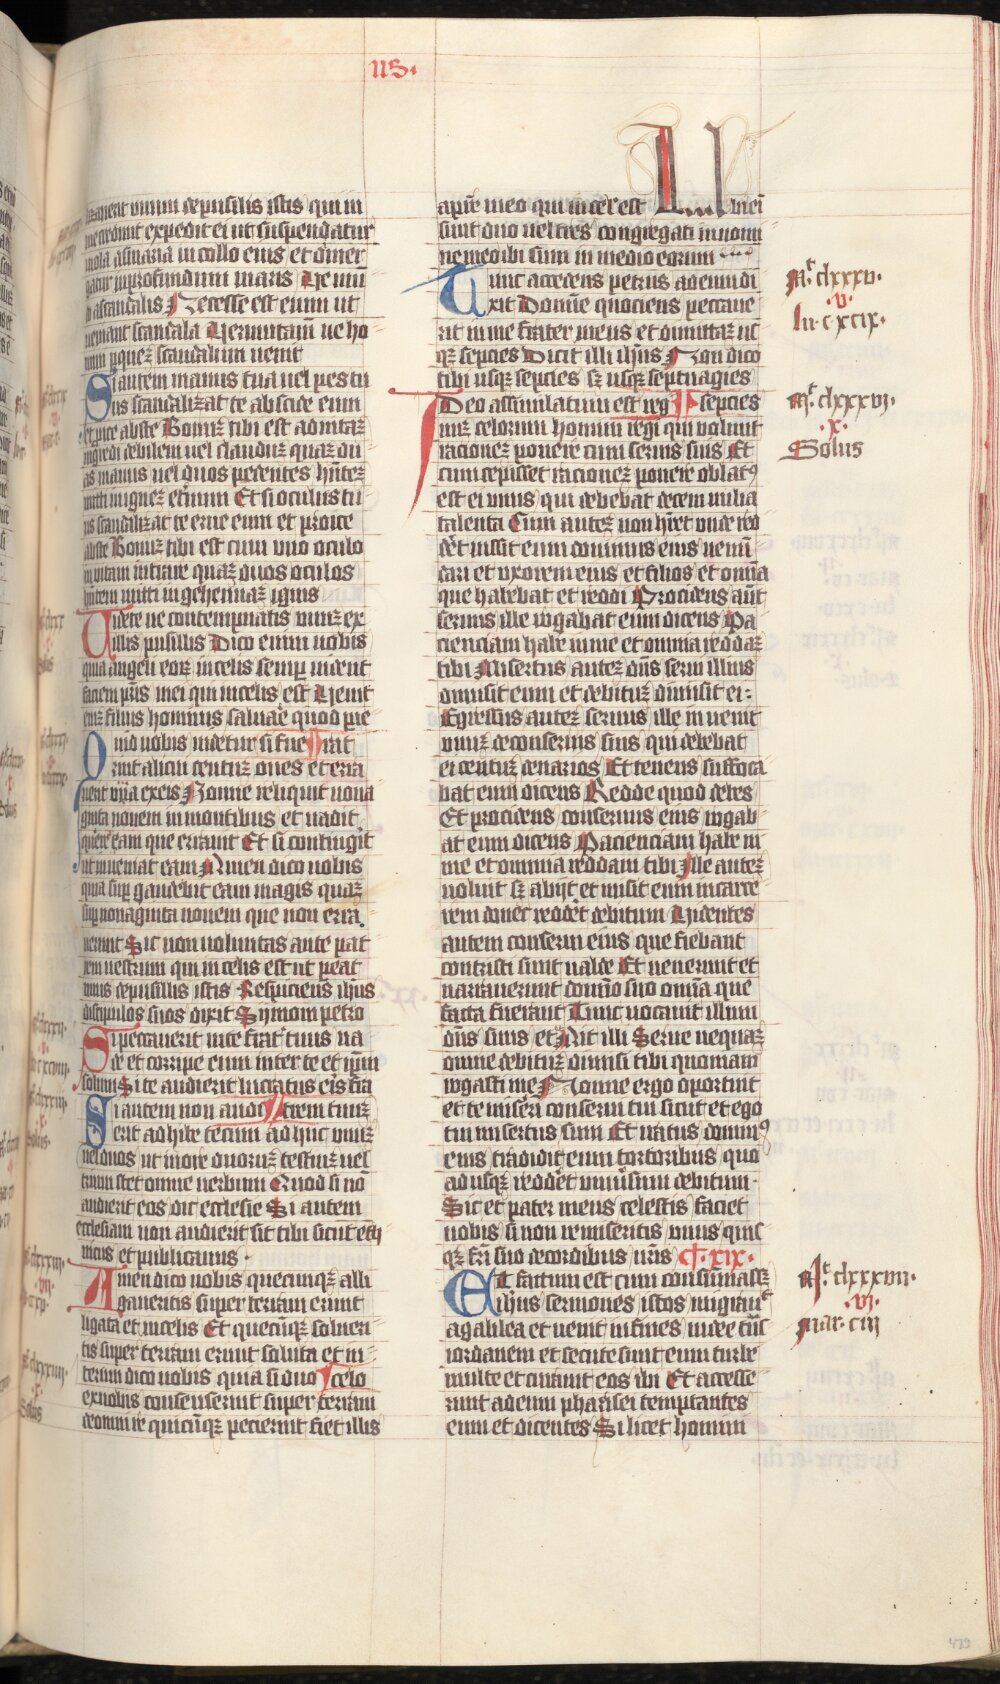 us.
lizauerit unum de pusillis istis qui in
me credunt expedit ei ut suspendatur
mola asinaria in collo eius et demer
gatur in profundum maris Ve mun
do a scandalis Necesse est enim ut
ueniant scandala Verumtam̄ ue ho
mini per quez scandalum uenit
Si autem manus tua uel pes tu
us scandalizat te abscide eum
et proice abste Bonuz tibi est ad uitaz
ingredi debilem uel clauduz quaz du
as manus uel duos pedes hn̄tez
mitti in ignez et̄num Et si oculus tu
us scandalizat te erue eum et proice
abste Bonuz tibi est cum uno oculo
in uitam intrare quaz duos oculos
hn̄tem mitti in gehennaz ignis
Videte ne contempnatis unuz ex
hiis pusillis Dico enim uobis
quia angeli eoꝝ in celis semꝑ uident
faciem pr̄is mei qui in celis est Venit
eniz filius hominis saluare quod ꝑie
Quid uobis uidetur si fue rat
rint alicui centuz oues et erra
uerit una ex eis Nonne reliquit nona
ginta nouem in montibus et uadit
querere eam que errauit Et si contingerit
ut inueniat eam Amen dico uobis
quia suꝑ gaudebit eam magis quaz
suꝑ nonaginta nouem que non erra
uerunt Sic non uoluntas ante pat
rem uestrum qui in celis est ut peat
unus de pusillis istis Respiciens ih̄us
discipulos suos dixit Symoni petro
Si peccauerit in te frat̄ tuus ua
de et corripe eum inter te et ip̄um
solum Si te audierit lucratus eis fra
Si autem non audi trem tuuz
erit adhibe tecum adhuc unuz
uel duos ut in ore duoruz testiuz uel
trium stet omne uerbum Quod si nō
audierit eos dic ecclesie Si autem
ecclesiam non audierit sit tibi sicut eth
nicus et publicanus
Amen dico uobis quecunqꝫ alli
gaueritis super terram erunt
ligata et in celis Et quecūqꝫ soluen
tis super terram erunt soluta et in
iterum dico uobis quia si duo celo
ex uobis consenserint super terram
de omni re quicūqꝫ pecierint fiet illis
a pr̄e meo qui in cel' est Ubi e̅i
sunt duo uel tres congregati in nomi
ne meo ibi sum in medio eorum
Tunc accedens petrus ad eum di
xit Domine quociens peccaue
rit in me frater meus et dimittaz us
qꝫ sepcies Dicit illi ih̄us Non dico
tibi usqꝫ sepcies sꝫ usqꝫ septuagies
Ideo assimilatum est reg sepcies
nuz celorum homini regi qui voluit
racionez ponere cum seruis suis Et
cum cepisset racionez ponere oblatꝰ
est ei unus qui debebat decem milia
talenta Cum autez non hr̄et unde red
det iussit eum dominus eius uenū
dari et uxorem eius et filios et omnia
que habebat et reddi Procidens aut̄
seruus ille rogabat eum dicens Pa
cienciam habe in me et omnia reddaz
tibi Misertus autez dn̄s serui illius
dimisit eum et debituz dimisit ei:
Egressus autez seruus ille inuenit
unuz de conseruis suis qui debebat
ei centuz denarios Et tenens suffoca
bat eum dicens Redde quod debes
Et procidens conseruus eius rogab
at eum dicens Pacienciam habe in
me et omnia reddam tibi Ille autez
noluit sꝫ abijt et misit eum in carce
rem donec redderet debitum Videntes
autem conserui eius que fiebant
contristi sunt ualde Et uenerunt et
narrauerunt domino suo omnia que
facta fuerant Tunc uocauit illum
dn̄s suus et Ait illi Serue nequaz
omne debituz dimisi tibi quoniam
rogasti me Nonne ergo oportuit
et te misereri conserui tui sicut et ego
tui misertus sum Et iratus dominꝰ
eius tradidit eum tortoribus quo
ad usqꝫ redderet uniuersum debitum.
Sic et pater meus celestis faciet
uobis si non remiseritis unus quis
qꝫ fr̄i suo de cordibus ur̄is C. xix.
Et factum est cum consumasꝫ
ih̄us sermones istos migrauit
a galilea et uenit in fines iudee t̄ns
iordanem et secute sunt eum turbe
multe et curauit eos ibi Et accesse
runt ad eum pharisei temptantes
eum et dicentes Si licet homini
M. clxxxv.
.v.
lu. cxcix.
M. clxxxvi.
.x.
Solus
M. clxxxviii.
.vi.
mar. ciii
479